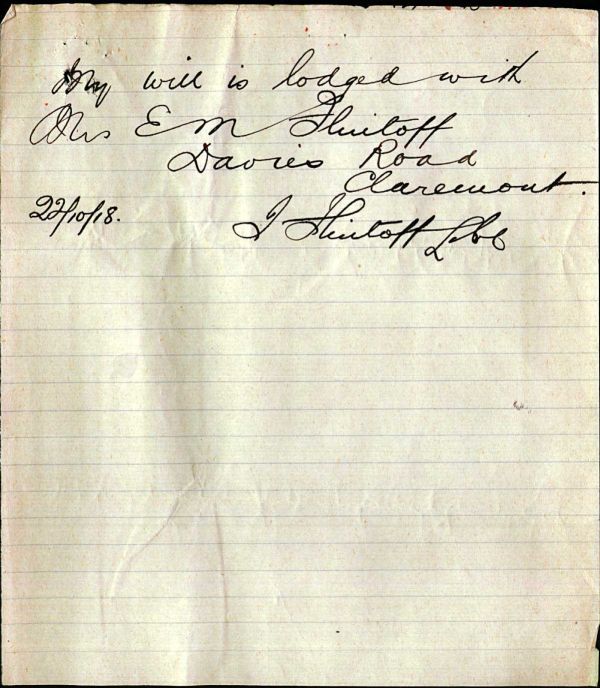 My will is lodged with
Mrs E M Flintoff
Davies Road
Claremont.
22/10/18. J Flintoff